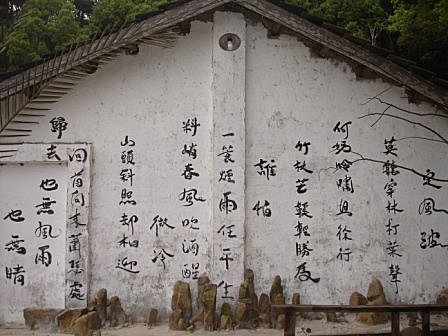 定風波
莫聽穿林打葉聲
何妨吟嘯且徐行
竹杖芒鞋輕勝馬
誰怕
一蓑煙雨任平生
料峭春風吹酒醒
微冷
山頭斜照却相迎
回首向來蕭瑟處
歸去
也無風雨
也無晴